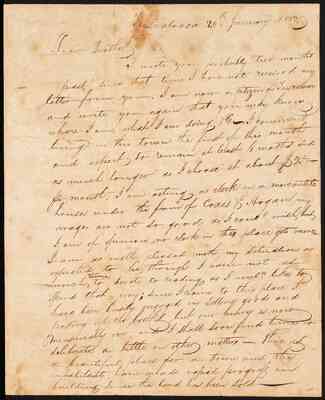 Tuscaloosa 20th January
Dear Brother
I wrote you probably two months
past, since that time I have not received any
letter from you. I am now a citizen of
and write you again that you may know
where I am, what I am doing, &c. I commenced
living in this town the first of this month
and expect to remain at least 6 months and
as much longer as I choose at about $
pr month, I am acting as clerk in a mercantile
house under the firm of & Hogan, my
wages are not so good as I could wish, but,
I am of opinion no clerk in this place gets more
I am as well pleased with my situation as I
expected to be, though I have not as
much time to devote to reading as I would like to
and that may since I came to this place I
have been busily engaged in selling goods and
books, but our hurry is now
measurably over and I shall soon find time to
deliberate a little on other matters. This is
a beautiful place for a town and the
inhabitants have made rapid progress in
building, since the land has been sold